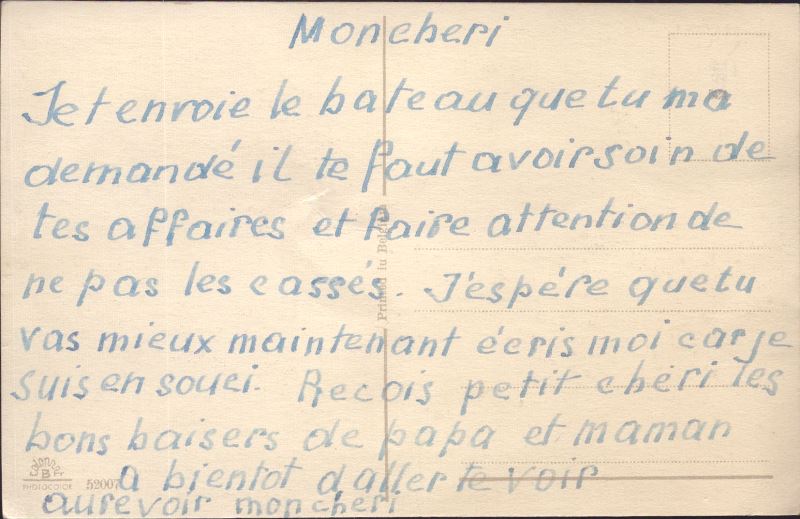 Moncheri
Je t envoie le bateau que tu ma
demandé il te faut avoir soin de
tes affaires et faire attention de
ne pas les cassés. J'espére que tu
vas mieux maintenant écris moi car je
suis en souci. Recois petit chéri les
bons baisers de papa et maman
a bientot d aller te voir
aurevoir moncheri
Printed in Belgium
PHOTOCOLOR 52007